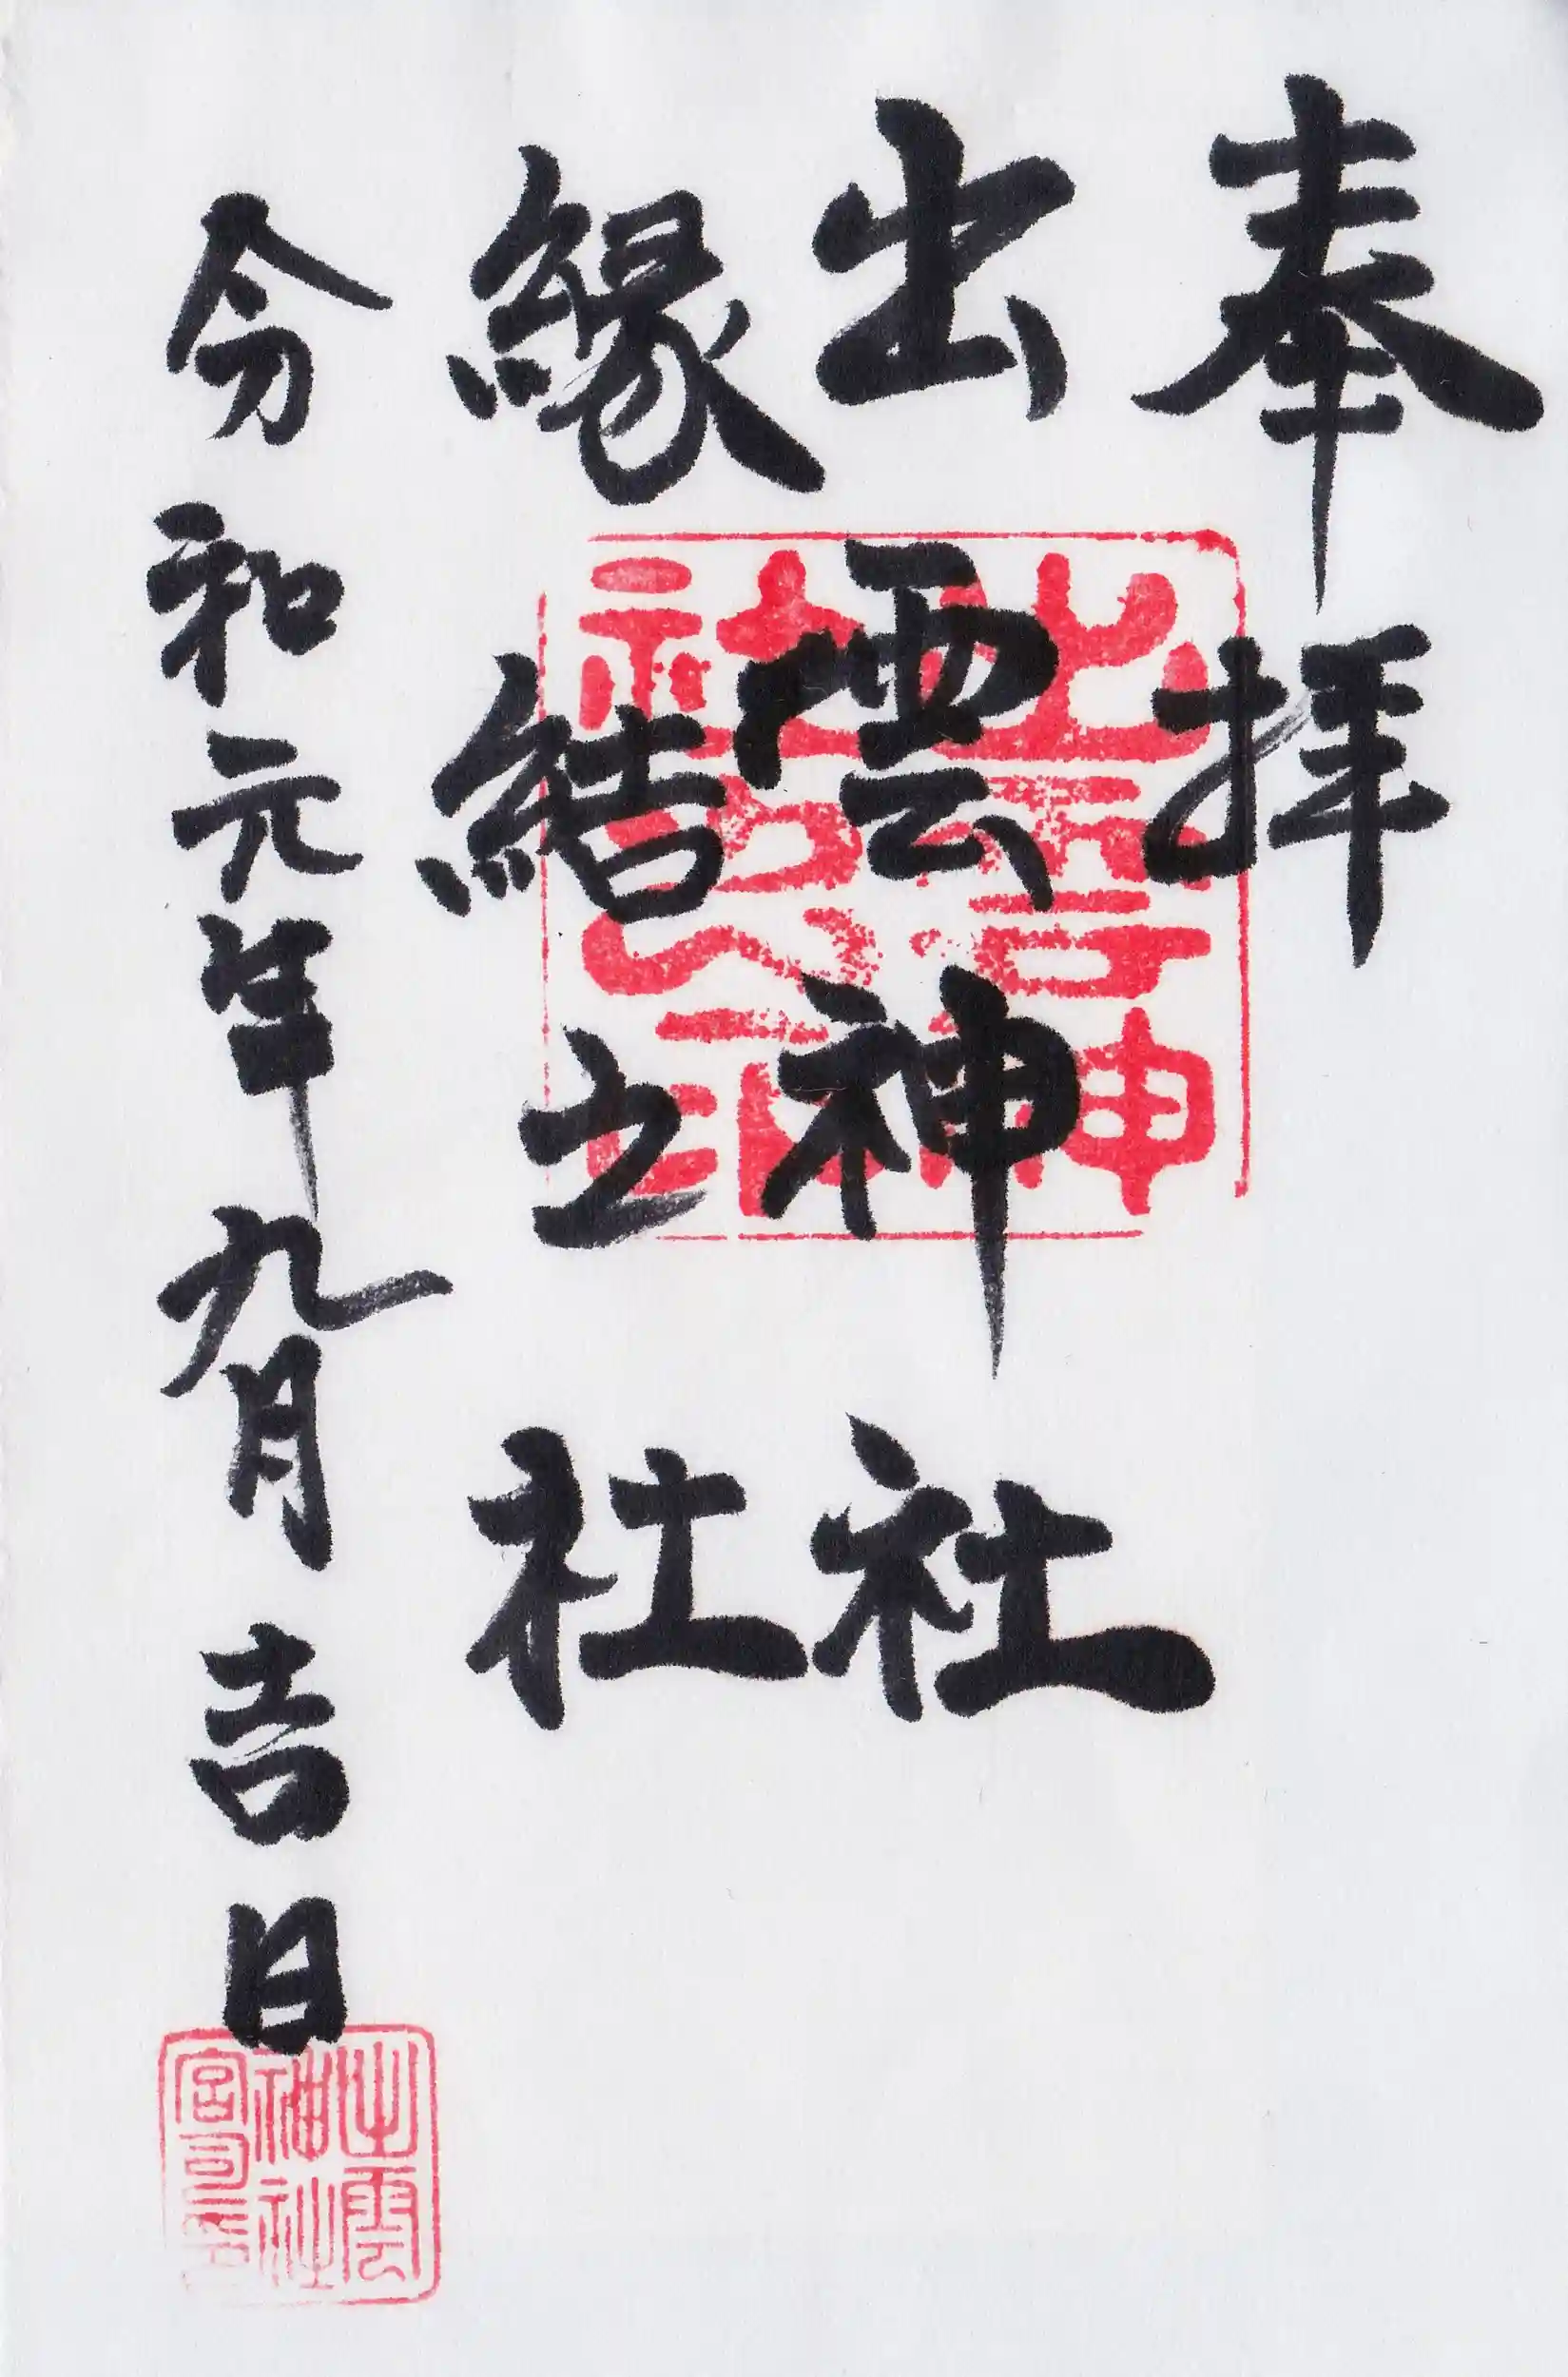 奉拝
出雲神社
縁結之社
令和元年九月吉日
出雲
神社
宮司之印